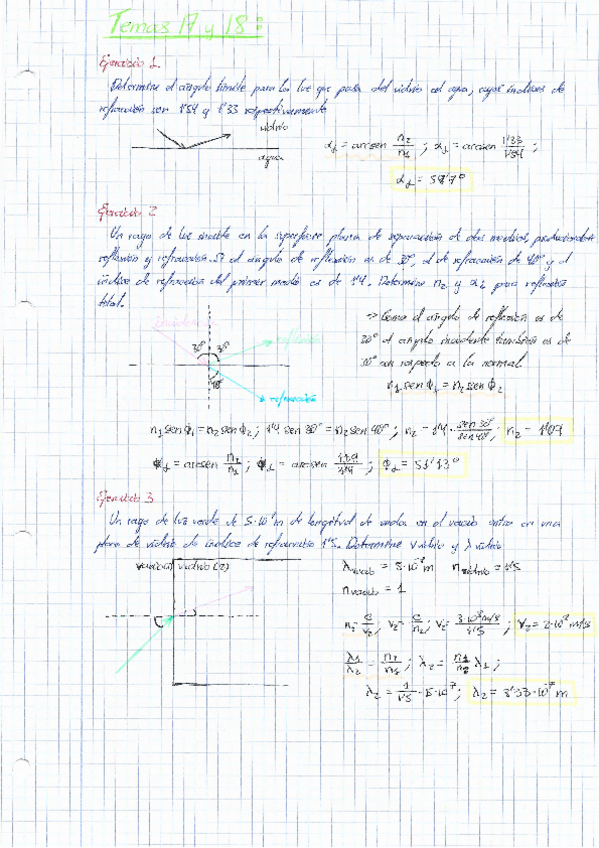 Temas 17 y 18:
Ejercicio 1
Determine el ángulo límite para la luz que pasa del vidrio al agua, cuyos índices de
refracción son 1'54 y 1'33 respectivamente
vidrio
agua
αL = arcsen n2/n1 ; αL = arcsen 1'33/1'54 ;
αL = 59'7°
Ejercicio 2
Un rayo de luz incide en la superficie plana de separación de dos medios, produciendose
reflexión y refracción. Si el ángulo de reflexión es de 30°, el de refracción de 40° y el
índice de refracción del primer medio es de 1'4. Determine n2 y αL para reflexión
total.
incidencia
30° 30°
reflexión
40°
refracción
=> Como el ángulo de reflexión es de
30° el ángulo incidente también es de
30° con respecto a la normal.
n1 sen ϕ1 = n2 sen ϕ2
n1 sen ϕ1 = n2 sen ϕ2 ; 1'4 · sen 30° = n2 sen 40° ; n2 = 1'4 · sen 30°/sen 40° ; n2 = 1'09
ϕL = arcsen n2/n1 ; ϕL = arcsen 1'09/1'4 ; ϕL = 51'13°
Ejercicio 3
Un rayo de luz verde de 5·10⁻⁷m de longitud de onda en el vacío entra en una
placa de vidrio de índice de refracción 1'5. Determine v vidrio y λ vidrio
vacío(1) vidrio(2)
λvacío = 5·10⁻⁷ m nvidrio = 1'5
nvacío = 1
n2 = c/v2 ; v2 = c/n2 ; v2 = 3·10⁸m/s/1'5 ; v2 = 2·10⁸ m/s
λ1/λ2 = n2/n1 ; λ2 = n1/n2 λ1 ;
λ2 = 1/1'5 · 5·10⁻⁷ ; λ2 = 3'33·10⁻⁷ m